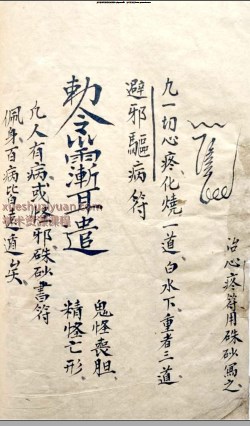 治心疼符用硃砂寫之
凡一切心疼化燒一道白水下重者三道
避邪驅病符
鬼怪喪胆
精怪亡形
凡人有病或
邪硃砂書符
佩身百病皆